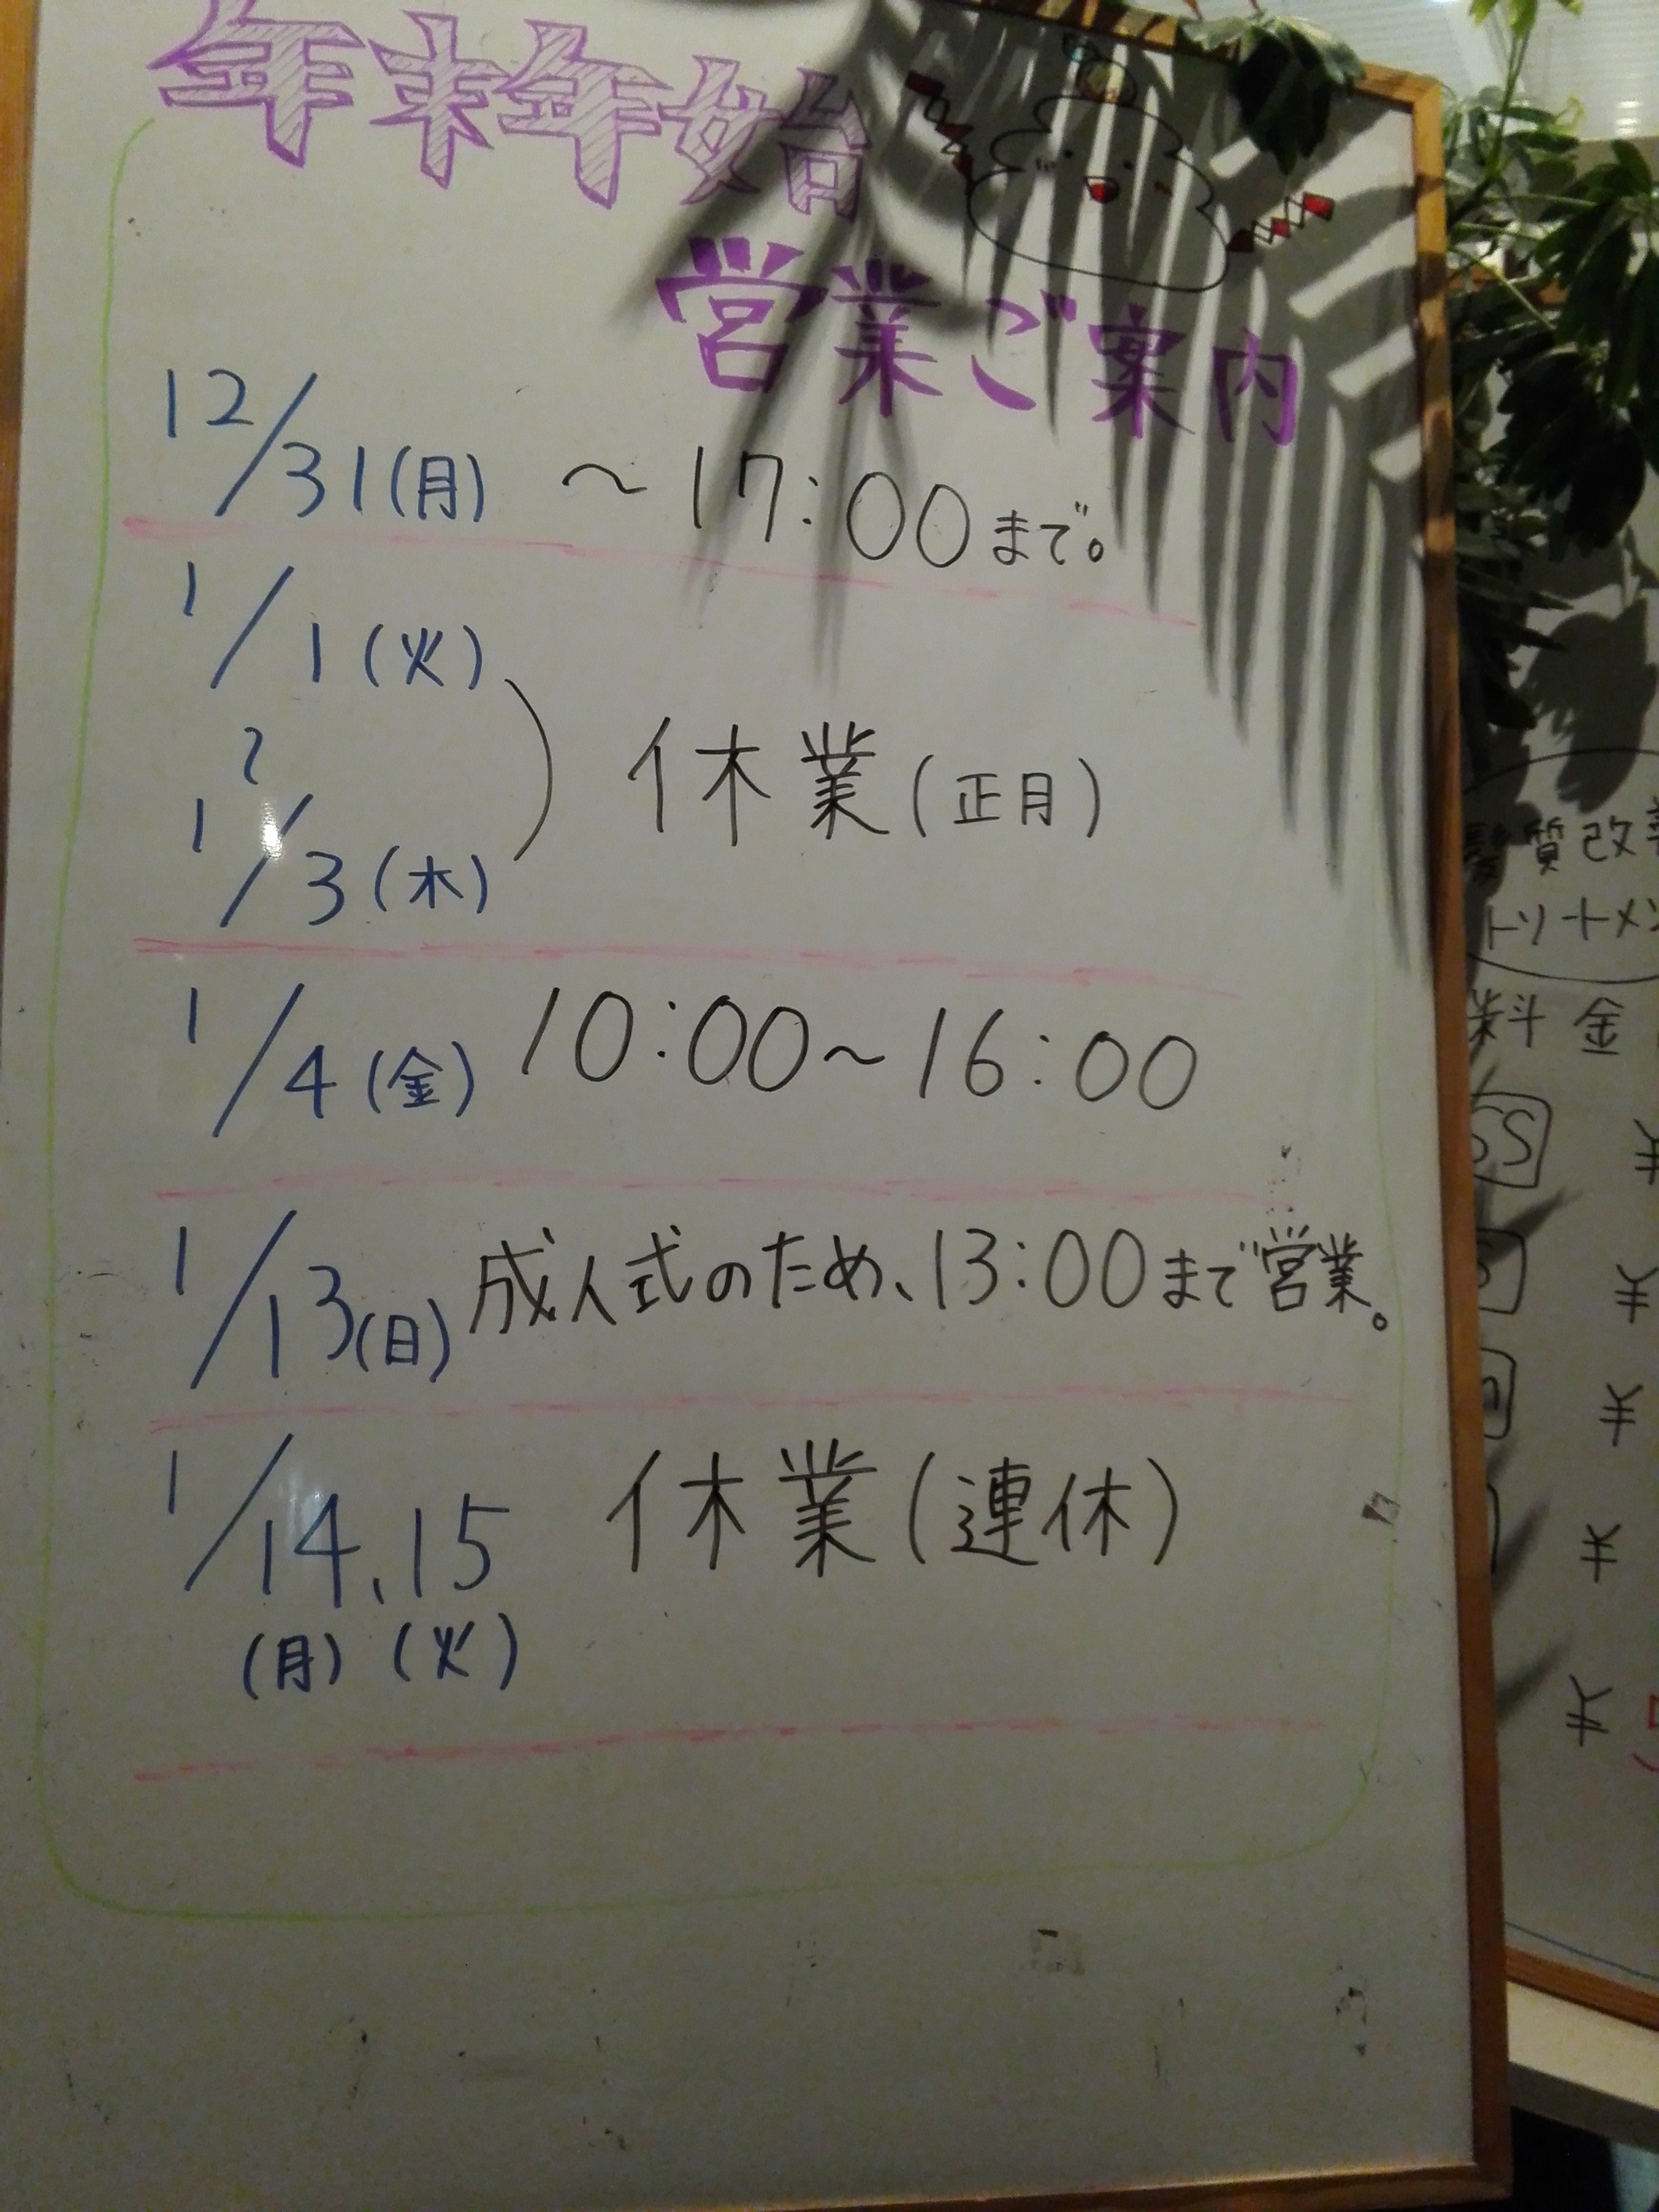 年末年始
営業ご案内
12/31(月) ～17:00まで。
1/1(火)
～
1/3(木)
休業(正月)
1/4(金) 10:00～16:00
1/13(日) 成人式のため、13:00まで営業。
1/14、15 休業(連休)
(月)(火)
髪質改
トリートメン
料金
SS ¥
S ¥
¥
¥
¥